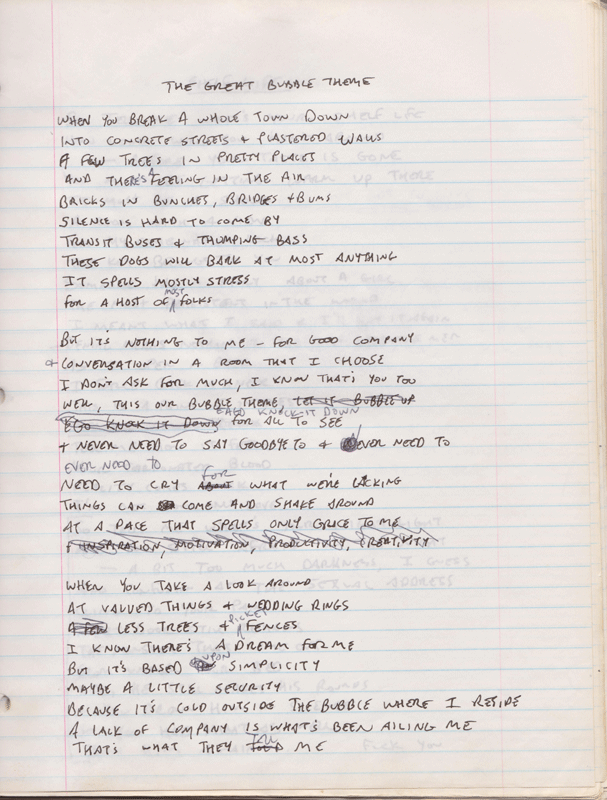 THE GREAT BUBBLE THEME
WHEN YOU BREAK A WHOLE TOWN DOWN
INTO CONCRETE STREETS & PLASTERED WALLS
A FEW TREES IN PRETTY PLACES
AND THERE'S A FEELING IN THE AIR
BRICKS IN BUNCHES, BRIDGES + BUMS
SILENCE IS HARD TO COME BY
TRANSIT BUSES & THUMPING BASS
THESE DOGS WILL BARK AT MOST ANYTHING
IT SPELLS MOSTLY STRESS
FOR A HOST OF MOST FOLKS
BUT IT'S NOTHING TO ME - FOR GOOD COMPANY
& CONVERSATION IN A ROOM THAT I CHOOSE
I DON'T ASK FOR MUCH, I KNOW THAT'S YOU TOO
WELL, THIS OUR BUBBLE THEME, LET IT BUBBLE UP
EGO KNOCK IT DOWN
EGO KNOCK IT DOWN FOR ALL TO SEE
+ NEVER NEED TO SAY GOODBYE TO & EVER NEED TO
EVER NEED TO
NEED TO CRY ABOUT FOR WHAT WE'RE LACKING
THINGS CAN COME AND SHAKE AROUND
AT A PACE THAT SPELLS ONLY GRACE TO ME
+ INSPIRATION, MOTIVATION, PRODUCTIVITY, CREATIVITY
WHEN YOU TAKE A LOOK AROUND
AT VALUED THINGS & WEDDING RINGS
A FEW LESS TREES & PICKET FENCES
I KNOW THERE'S A DREAM FOR ME
BUT IT'S BASED UPON SIMPLICITY
MAYBE A LITTLE SECURITY
BECAUSE IT'S COLD OUTSIDE THE BUBBLE WHERE I RESIDE
A LACK OF COMPANY IS WHAT'S BEEN AILING ME
THAT'S WHAT THEY TOLD ME